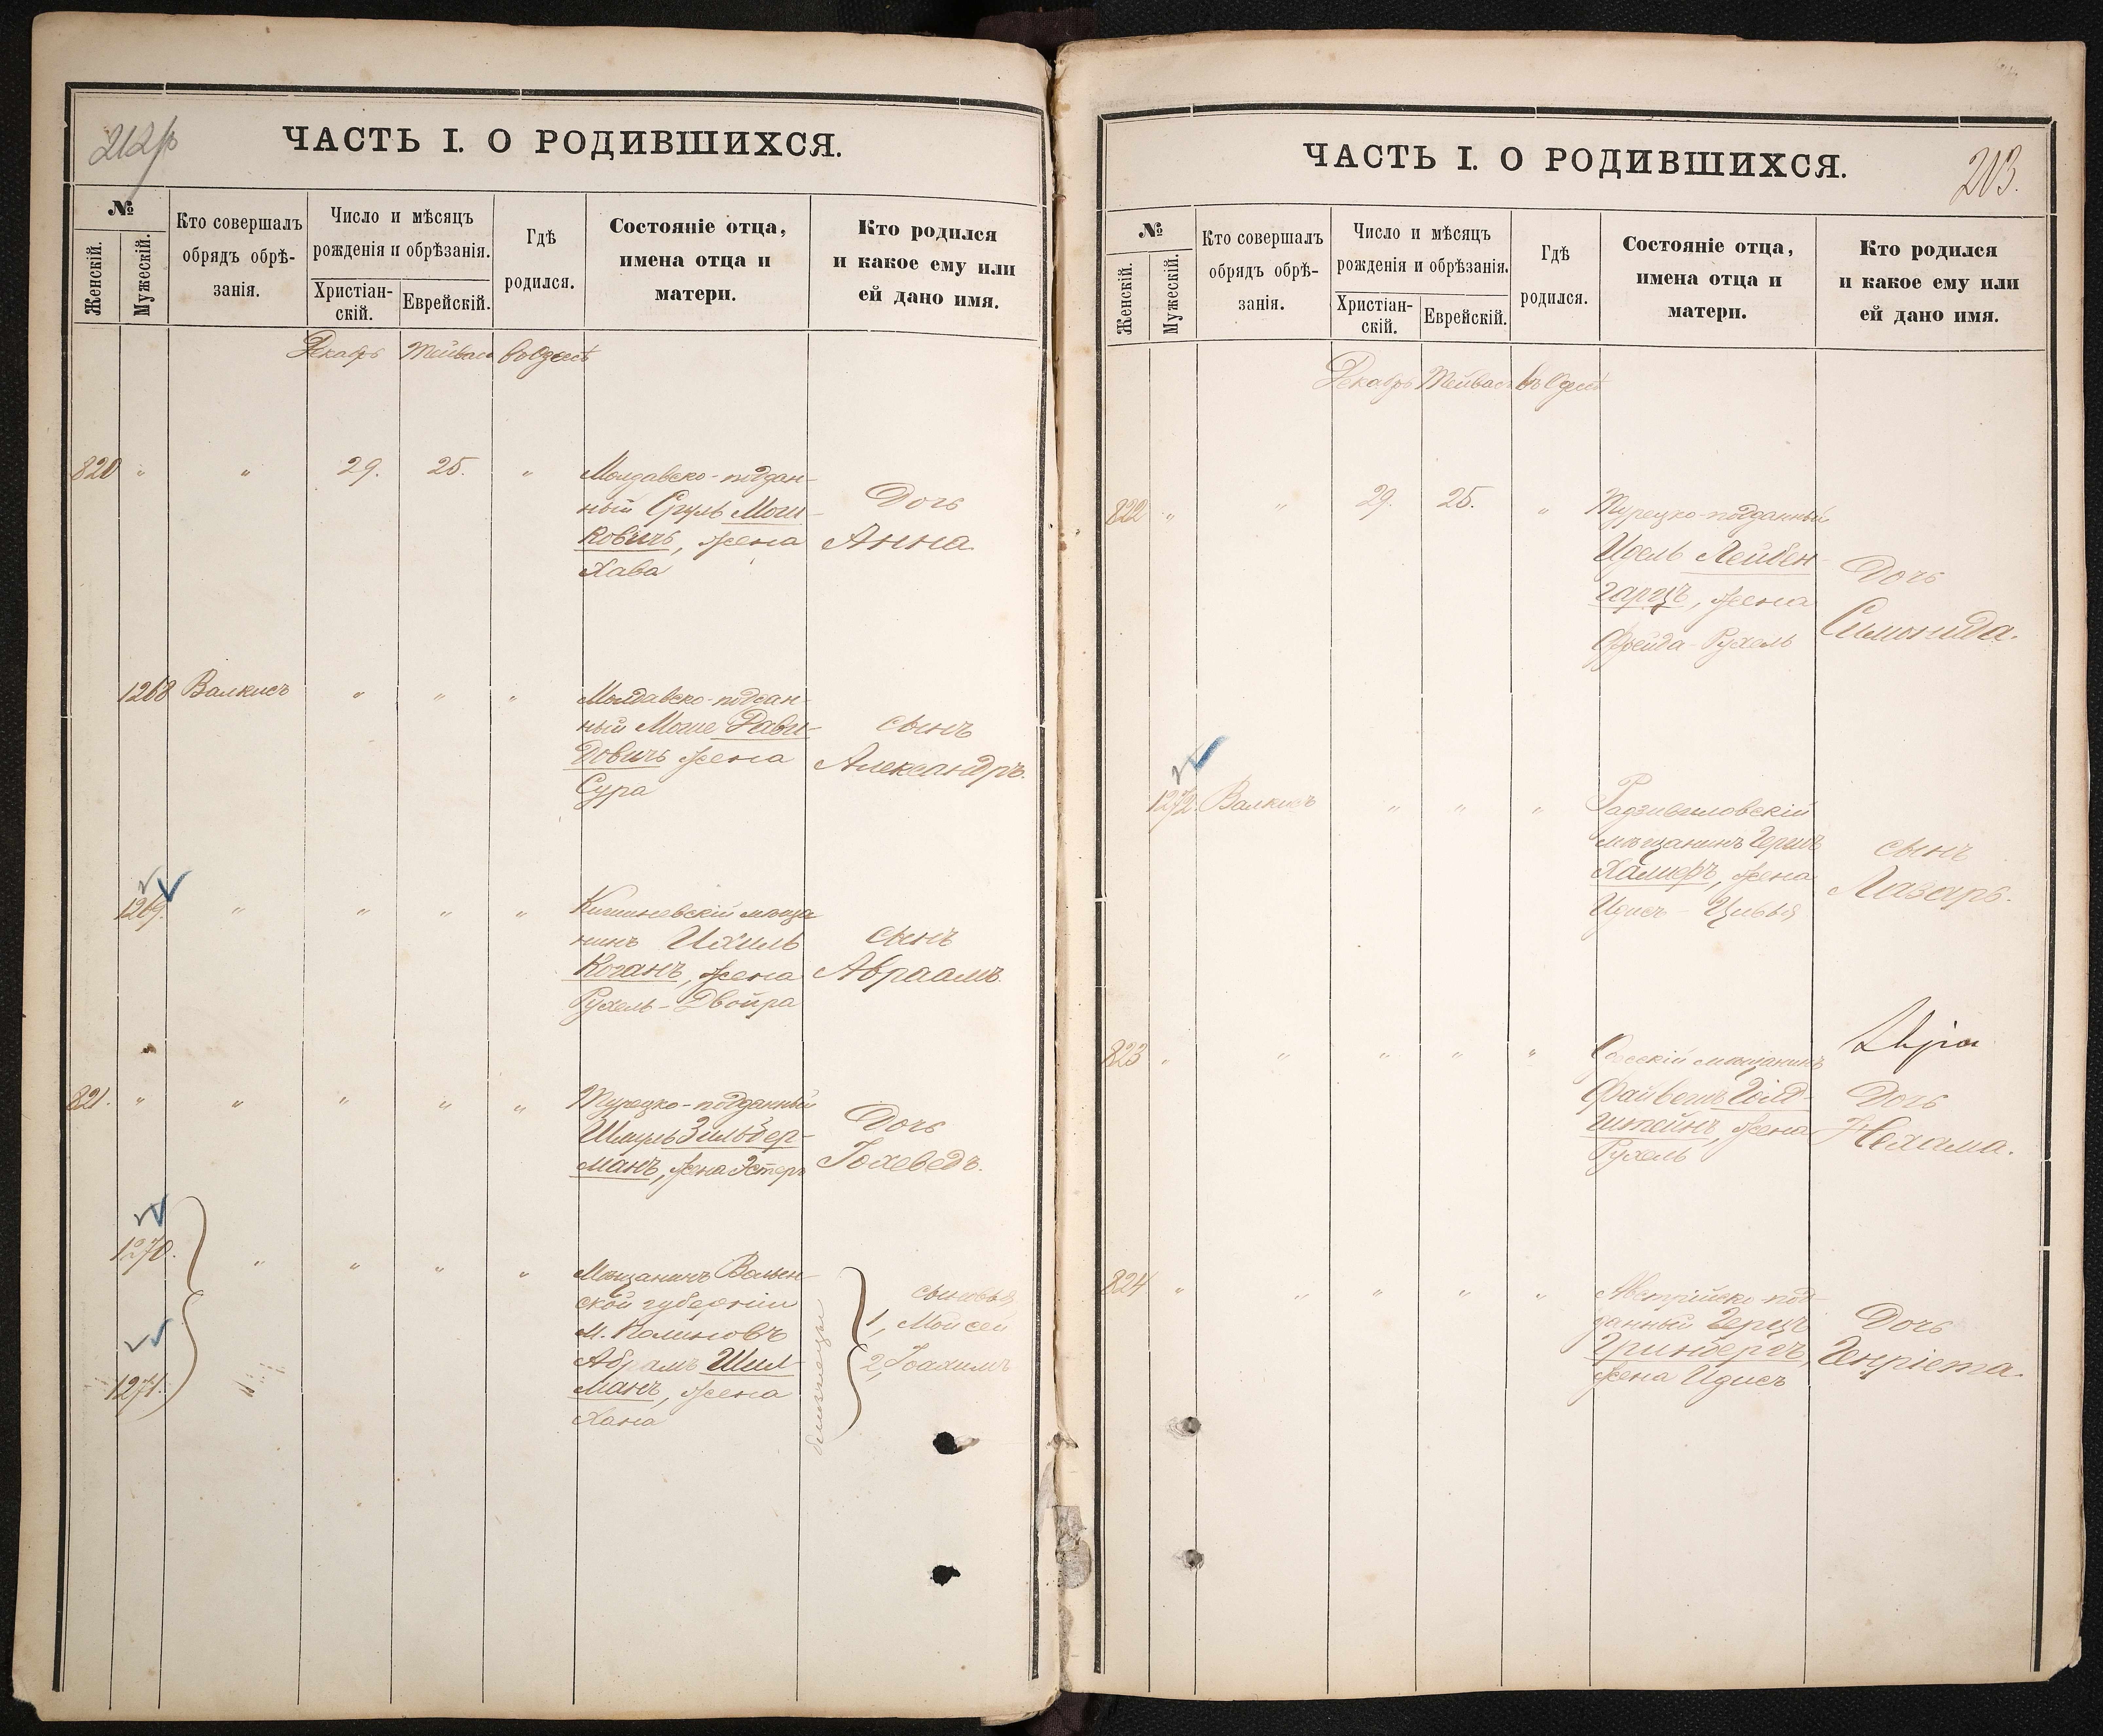 ЧАСТЬ I. О РОДИВШИХСЯ.
№
Женскій.
Мужескій.
Кто совершалъ
обрядъ обрѣ-
занія.
Число и мѣсяцъ
рожденія и обрѣзанія.
Христіан-
скій.
Еврейскій.
Гдѣ
родился.
Состояніе отца,
имена отца и
матери.
Кто родился
и какое ему или
ей дано имя.
Декабрь Тейвасъ въ Одессѣ
820 " " 29. 25. "
Молдавско-поддан-
ный Сруль Мош-
ковичъ, жена
Хава
Дочь
Анна
1268 Валкисъ " " "
Молдавско-поддан-
ный Моше Дави-
довичъ жена
Сура
сынъ
Александръ.
1269. " " " "
Кишиневскій мѣща
нинъ Ихиль
Коганъ, жена
Рухель-Двойра
сынъ
Авраамъ.
821. " " " " "
Турецко-подданный
Шмуль Зильбер-
манъ, жена Эстеръ
Дочь
Іохеведъ.
1270.
1271.
" " " "
Мѣщанинъ Волын-
ской губерніи
М. Полиновъ
Абрамъ Шил-
манъ, жена
Хана
близнецы
сыновья
1, Мойсей
2, Іоахимъ
ЧАСТЬ I. О РОДИВШИХСЯ.
203.
№
Женскій.
Мужескій.
Кто совершалъ
обрядъ обрѣ-
занія.
Число и мѣсяцъ
рожденія и обрѣзанія.
Христіан-
скій.
Еврейскій.
Гдѣ
родился.
Состояніе отца,
имена отца и
матери.
Кто родился
и какое ему или
ей дано имя.
Декабрь Тейвасъ въ Одессѣ
822 " " 29. 25. "
Турецко-подданный
Идель Лейбен-
гарцъ, жена
Фрейда-Рухель
Дочь
Симонида.
1272. Валкисъ " " "
Радзивиловскій
мѣщанинъ Гершъ
Халифъ, жена
Идисъ-Цивья
сынъ
Лазарь.
823 " " " " "
Одесскій мѣщанинъ
Файвешъ Голд-
штейнъ, жена
Рухель
Дочь
Нехама.
824 " " " " "
Австрійско-под-
данный Герцъ
Гринбергъ,
жена Идисъ
Дочь
Генріета.